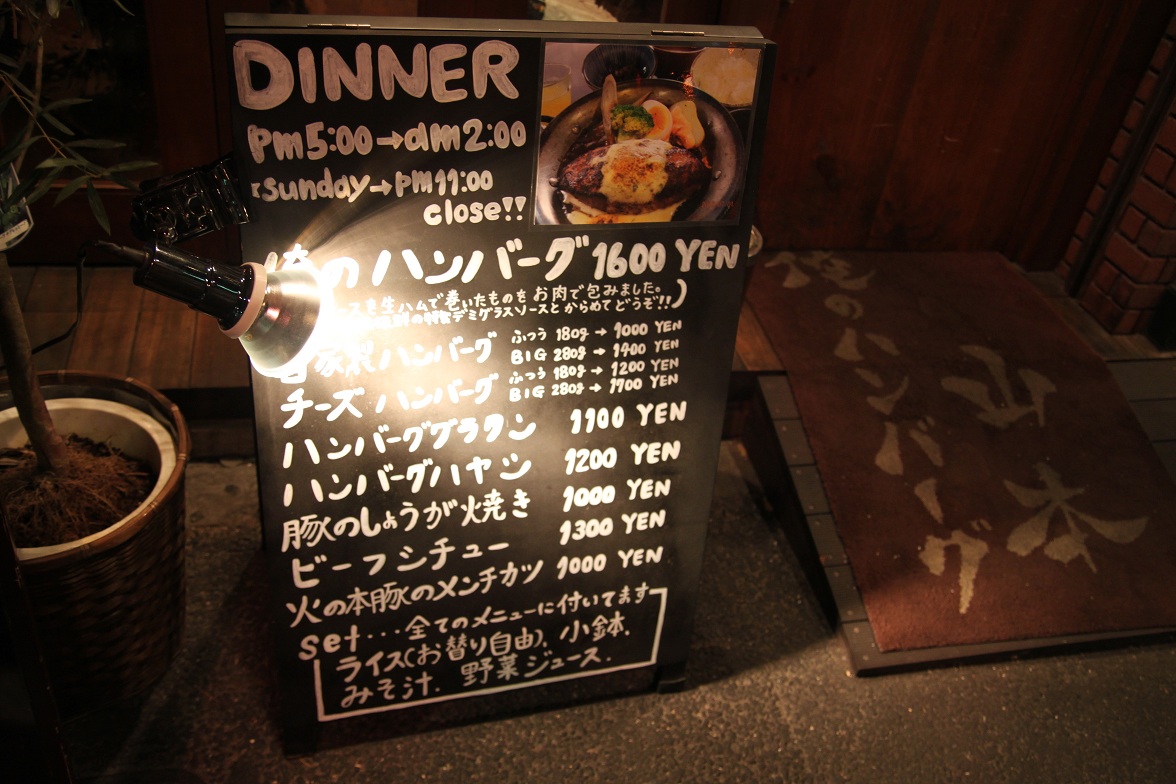 DINNER
pm5:00→am2:00
sunday→pm11:00
close!!
俺のハンバーグ 1600 YEN
ースを生ハムで巻いたものをお肉で包みました。
デミグラスソースとからめてどうぞ!!)
自家製ハンバーグ ふつう 180g → 1000 YEN
BIG 280g → 1400 YEN
チーズハンバーグ ふつう 180g → 1200 YEN
BIG 280g → 1700 YEN
ハンバーググラタン 1100 YEN
ハンバーグハヤシ 1200 YEN
豚のしょうが焼き 1000 YEN
ビーフシチュー 1300 YEN
火の本豚のメンチカツ 1000 YEN
set・・・全てのメニューに付いてます
ライス(お替り自由)、小鉢.
みそ汁. 野菜ジュース.
俺のハンバーグ
山本